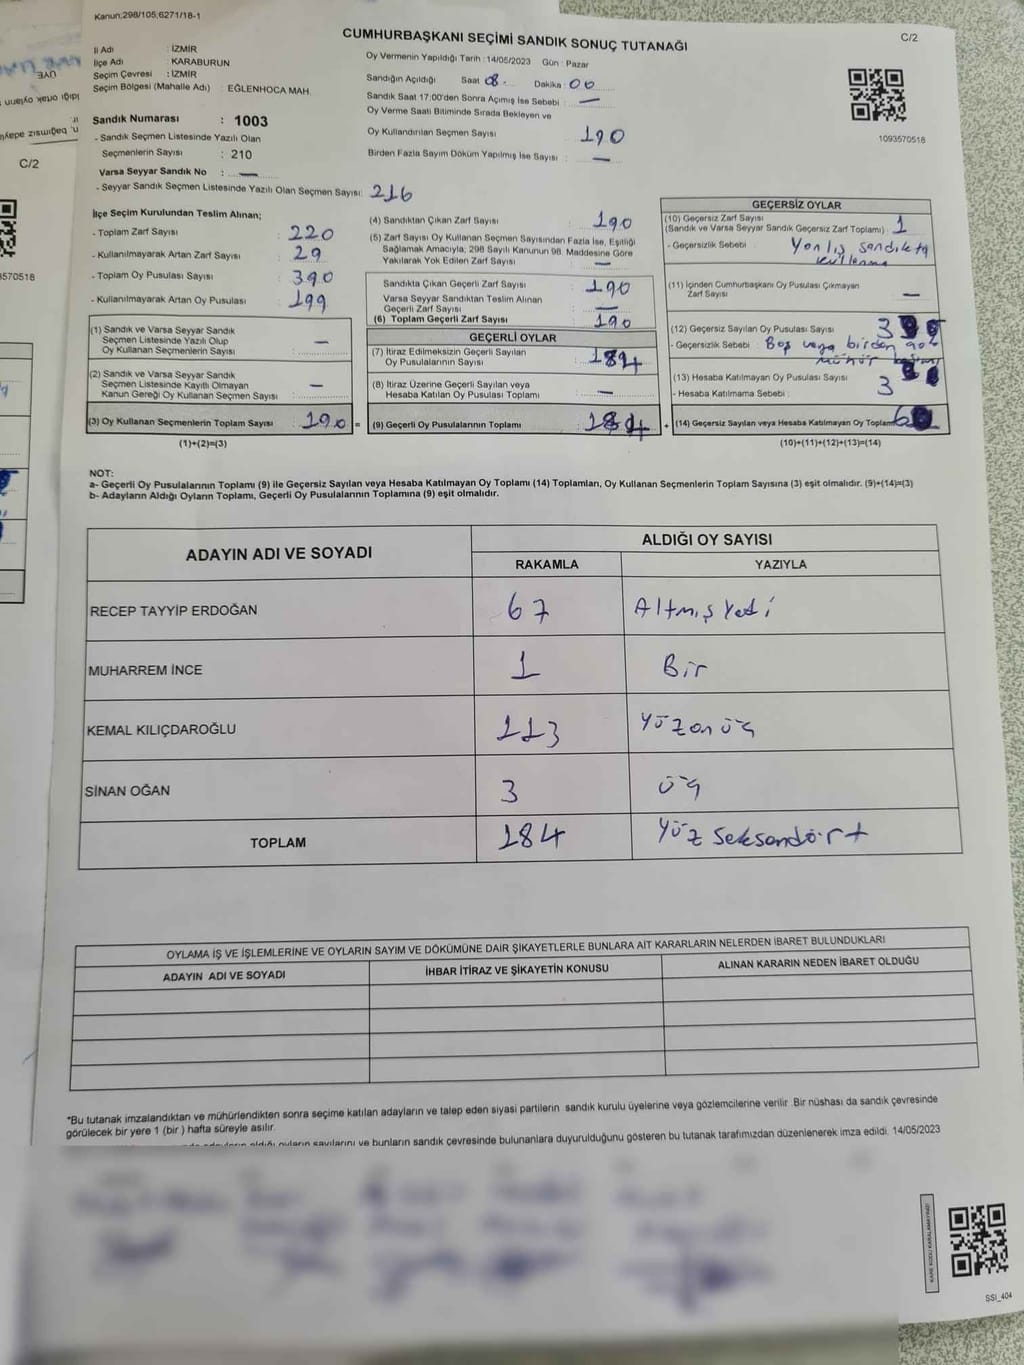 Kanun;298/105;6271/18-1
CUMHURBAŞKANI SEÇİMİ SANDIK SONUÇ TUTANAĞI
C/2
İl Adı : İZMİR
İlçe Adı : KARABURUN
Seçim Çevresi : İZMİR
Seçim Bölgesi (Mahalle Adı) : EĞLENHOCA MAH.
Oy Vermenin Yapıldığı Tarih : 14/05/2023 Gün : Pazar
Sandığın Açıldığı Saat 08. Dakika : 00
Sandık Saat 17:00'den Sonra Açımış İse Sebebi : —
Oy Verme Saati Bitiminde Sırada Bekleyen ve
Oy Kullandırılan Seçmen Sayısı : 190
Birden Fazla Sayım Döküm Yapılmış İse Sayısı : —
1093570518
Sandık Numarası : 1003
- Sandık Seçmen Listesinde Yazılı Olan
Seçmenlerin Sayısı : 210
Varsa Seyyar Sandık No : —
- Seyyar Sandık Seçmen Listesinde Yazılı Olan Seçmen Sayısı: 216
İlçe Seçim Kurulundan Teslim Alınan;
- Toplam Zarf Sayısı : 220
- Kullanılmayarak Artan Zarf Sayısı : 29
- Toplam Oy Pusulası Sayısı : 390
- Kullanılmayarak Artan Oy Pusulası : 199
(1) Sandık ve Varsa Seyyar Sandık
Seçmen Listesinde Yazılı Olup
Oy Kullanan Seçmenlerin Sayısı : —
(2) Sandık ve Varsa Seyyar Sandık
Seçmen Listesinde Kayıtlı Olmayan
Kanun Gereği Oy Kullanan Seçmen Sayısı : —
(3) Oy Kullanan Seçmenlerin Toplam Sayısı : 190 =
(1)+(2)=(3)
(4) Sandıktan Çıkan Zarf Sayısı : 190
(5) Zarf Sayısı Oy Kullanan Seçmen Sayısından Fazla İse, Eşitliği
Sağlamak Amacıyla, 298 Sayılı Kanunun 98. Maddesine Göre
Yakılarak Yok Edilen Zarf Sayısı : —
Sandıkta Çıkan Geçerli Zarf Sayısı : 190
Varsa Seyyar Sandıktan Teslim Alınan
Geçerli Zarf Sayısı : —
(6) Toplam Geçerli Zarf Sayısı : 190
GEÇERLİ OYLAR
(7) İtiraz Edilmeksizin Geçerli Sayılan
Oy Pusulalarının Sayısı : 184
(8) İtiraz Üzerine Geçerli Sayılan veya
Hesaba Katılan Oy Pusulası Toplamı : —
(9) Geçerli Oy Pusulalarının Toplamı : 184 +
GEÇERSİZ OYLAR
(10) Geçersiz Zarf Sayısı
(Sandık ve Varsa Seyyar Sandık Geçersiz Zarf Toplamı) : 1
- Geçersizlik Sebebi : Yanlış sandıkta
kullanma
(11) İçinden Cumhurbaşkanı Oy Pusulası Çıkmayan
Zarf Sayısı : —
(12) Geçersiz Sayılan Oy Pusulası Sayısı : 3
- Geçersizlik Sebebi : Boş veya birden çok
mühür
(13) Hesaba Katılmayan Oy Pusulası Sayısı : 3
- Hesaba Katılmama Sebebi :
(14) Geçersiz Sayılan veya Hesaba Katılmayan Oy Toplamı 6
(10)+(11)+(12)+(13)=(14)
NOT:
a- Geçerli Oy Pusulalarının Toplamı (9) ile Geçersiz Sayılan veya Hesaba Katılmayan Oy Toplamı (14) Toplamları, Oy Kullanan Seçmenlerin Toplam Sayısına (3) eşit olmalıdır. (9)+(14)=(3)
b- Adayların Aldığı Oyların Toplamı, Geçerli Oy Pusulalarının Toplamına (9) eşit olmalıdır.
ADAYIN ADI VE SOYADI
ALDIĞI OY SAYISI
RAKAMLA YAZIYLA
RECEP TAYYİP ERDOĞAN 67 Altmış Yedi
MUHARREM İNCE 1 Bir
KEMAL KILIÇDAROĞLU 113 Yüz on üç
SİNAN OĞAN 3 üç
TOPLAM 184 Yüz Seksandört
OYLAMA İŞ VE İŞLEMLERİNE VE OYLARIN SAYIM VE DÖKÜMÜNE DAİR ŞİKAYETLERLE BUNLARA AİT KARARLARIN NELERDEN İBARET BULUNDUKLARI
ADAYIN ADI VE SOYADI İHBAR İTİRAZ VE ŞİKAYETİN KONUSU ALINAN KARARIN NEDEN İBARET OLDUĞU
*Bu tutanak imzalandıktan ve mühürlendikten sonra seçime katılan adayların ve talep eden siyasi partilerin sandık kurulu üyelerine veya gözlemcilerine verilir .Bir nüshası da sandık çevresinde
görülecek bir yere 1 (bir ) hafta süreyle asılır.
oyların sayılarını ve bunların sandık çevresinde bulunanlara duyurulduğunu gösteren bu tutanak tarafımızdan düzenlenerek imza edildi. 14/05/2023
KARE KODU KARALAMAYINIZ!
SSI_404
ÜYE
C/2
3570518